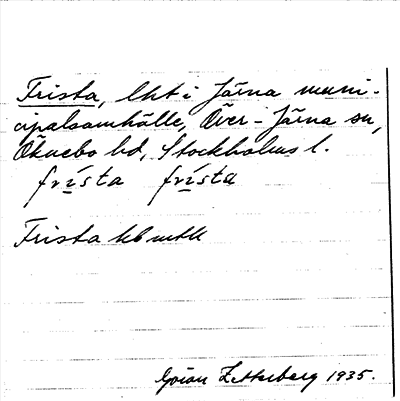 Frista, lht i Järna muni-
cipalsamhälle, Över-Järna sn,
Öknebo hd, Stockholms l.
frista frista
Frista
Göran Zetterberg 1935.